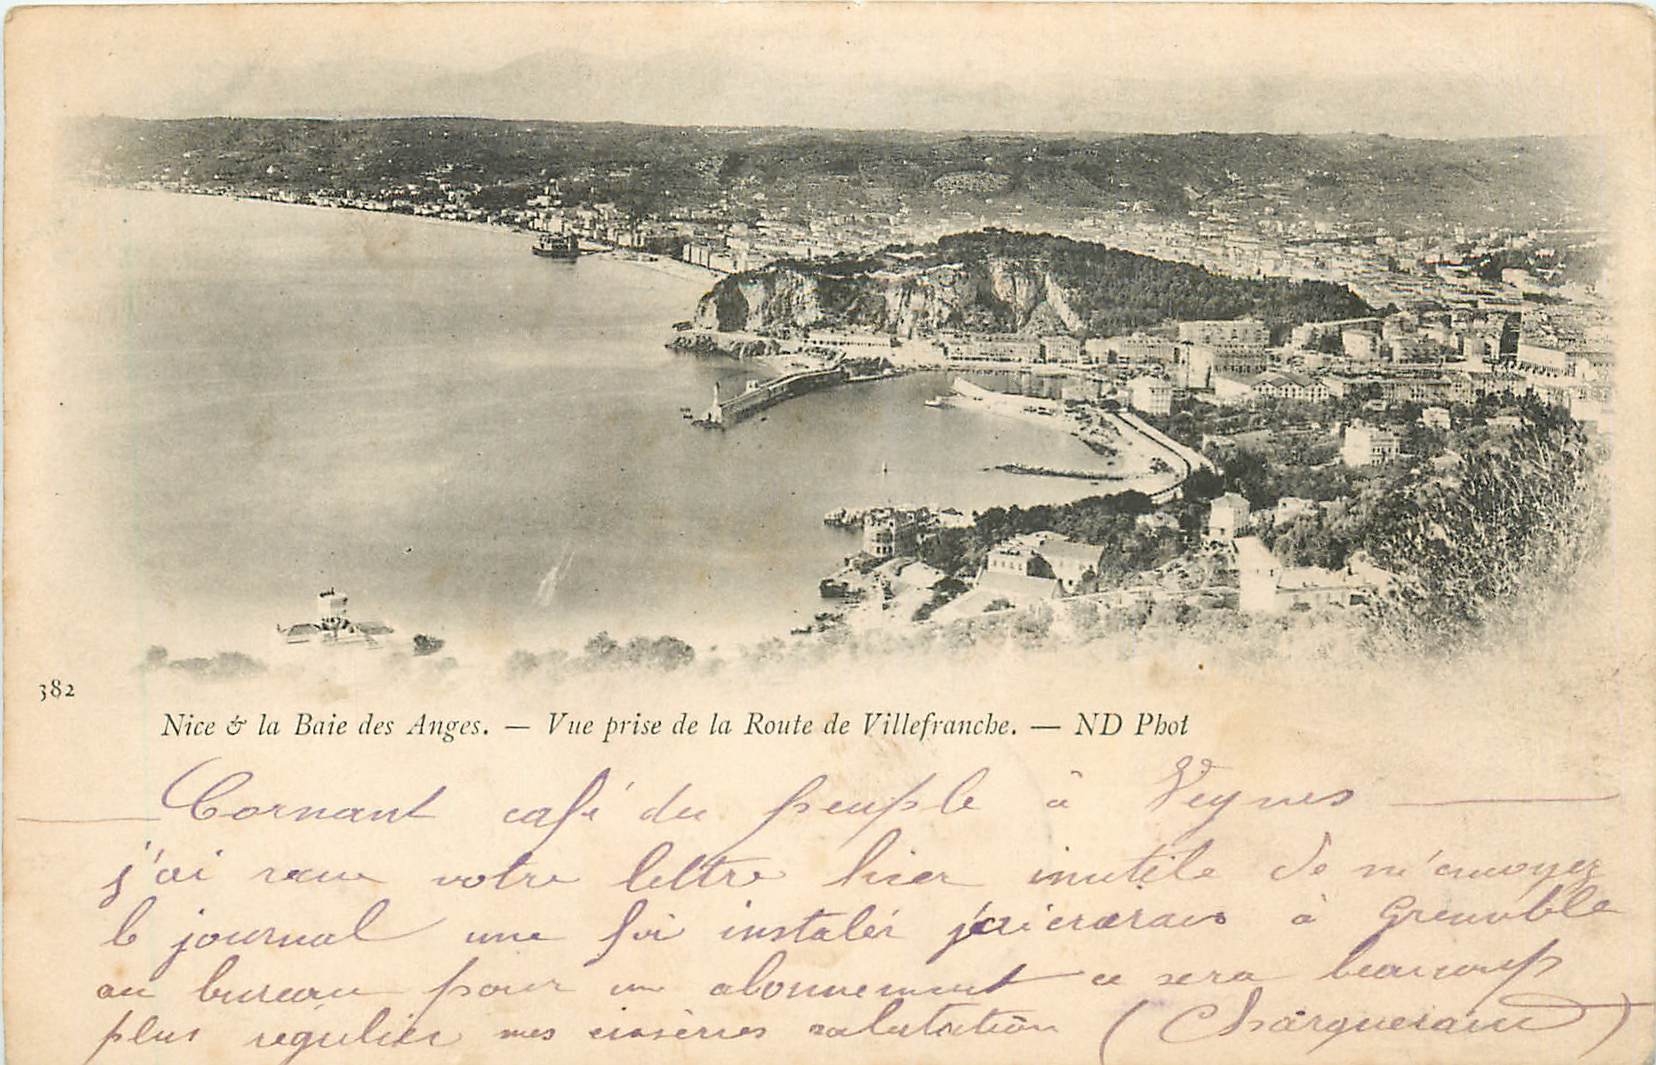 382
Nice & la Baie des Anges. — Vue prise de la Route de Villefranche. — ND Phot
Cornant café du peuple à Veynes
j'ai recu votre lettre hier inutile de m'envoyez
le journal une foi instaler j'ecierarais à Grenoble
au bureau pour un abonnement ce sera beaucoup
plus régulier mes sinsères salutation (